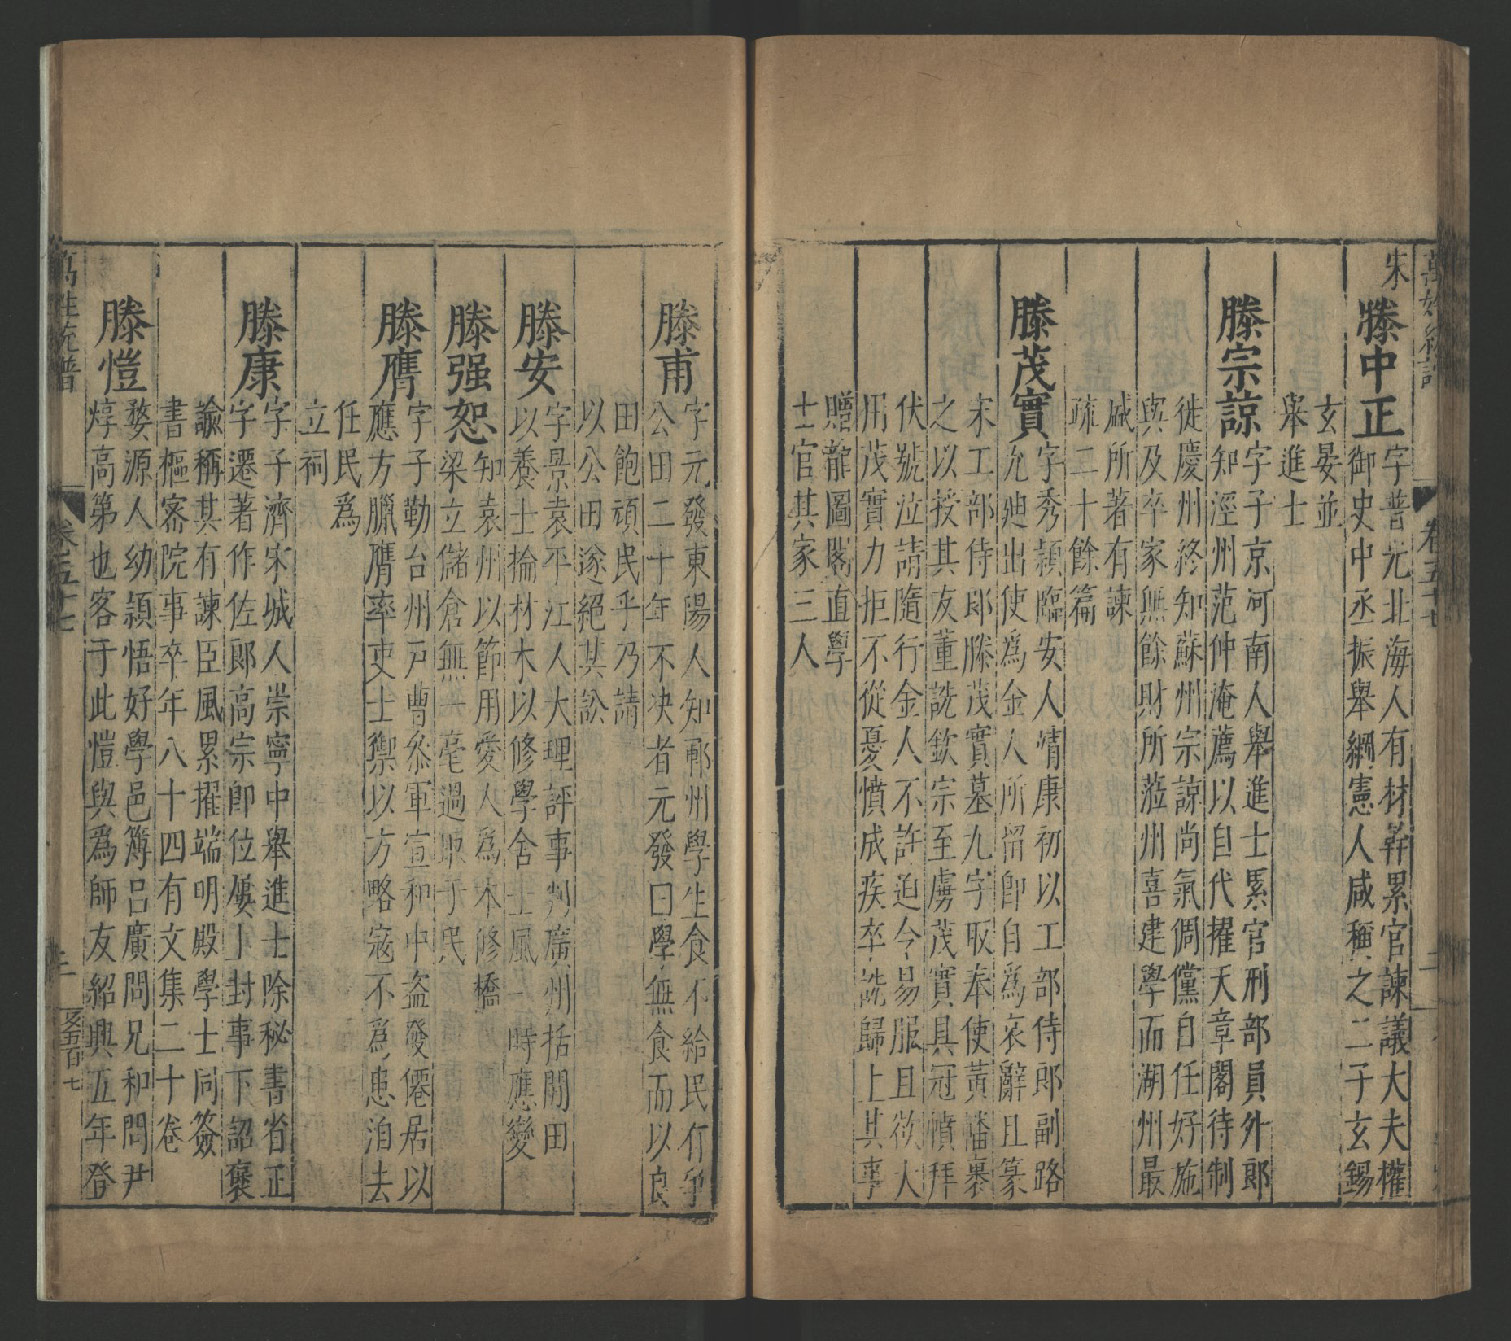 宋
滕中正字普光北海人有材幹累官諫議大夫權
御史中丞振舉綱憲人咸穪之二子玄錫
玄晏並
舉進士
滕宗諒字子京河南人舉進士累官刑部員外郎
知涇州范仲淹薦以自代擢天章閣待制
徙慶州終知蘇州宗諒尚氣倜儻自任好施
與及卒家無餘財所蒞州喜建學而湖州最
咸所著有諫
疏二十餘篇
滕茂實字秀穎臨安人情康初以工部侍郎副路
允廸出使為金人所留即自為哀辭且篆
宋工部侍郎滕茂實墓九字取奉使黃旛裹
之以授其友董詵欽宗至虜茂實具冠幘拜
伏號泣請隨行金人不許迫令易服且欲人
用茂實力拒不從憂憤成疾卒詵歸上其事
贈龍圖閣直學
士官其家三人
滕甫字元發東陽人知鄆州學生食不給民有爭
公田二十年不决者元發曰學無食而以良
田飽頑民乎乃請
以公田遂絕其訟
滕安字景袁平江人大理評事判廣州括閒田
以養士掄材木以修學舍士風一時應變
滕强恕知袁州以節用愛人為本修橋
梁立儲倉無一毫過取于民
滕膺字子勤台州戸曹叅軍宣和中盗發僊居以
應方臘膺率吏士禦以方略寇不為患洎去
任民為
立祠
滕康字子濟宋城人崇寧中舉進士除秘書省正
字遷著作佐郎高宗即位屢上封事下詔襃
諭稱其有諫臣風累擢端明殿學士同簽
書樞宻院事卒年八十四有文集二十卷
滕愷婺源人幼穎悟好學邑簿呂廣問兄和問尹
焞高第也客于此愷與為師友紹興五年登
萬姓統譜
卷五十七
二